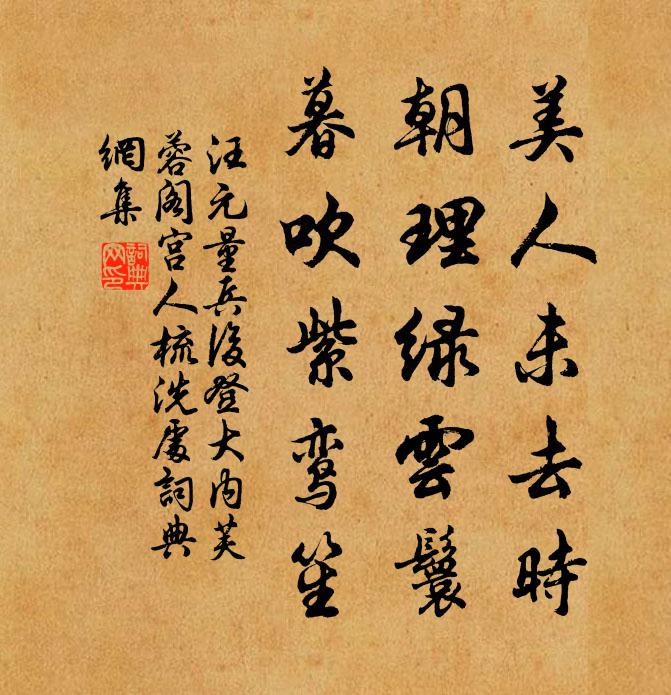 美人未去時
朝理緑雲鬟
暮吹紫鸾笙
汪元量兵後登大内芙
蓉阁宫人梳洗處詞典
網集
詞典
网印